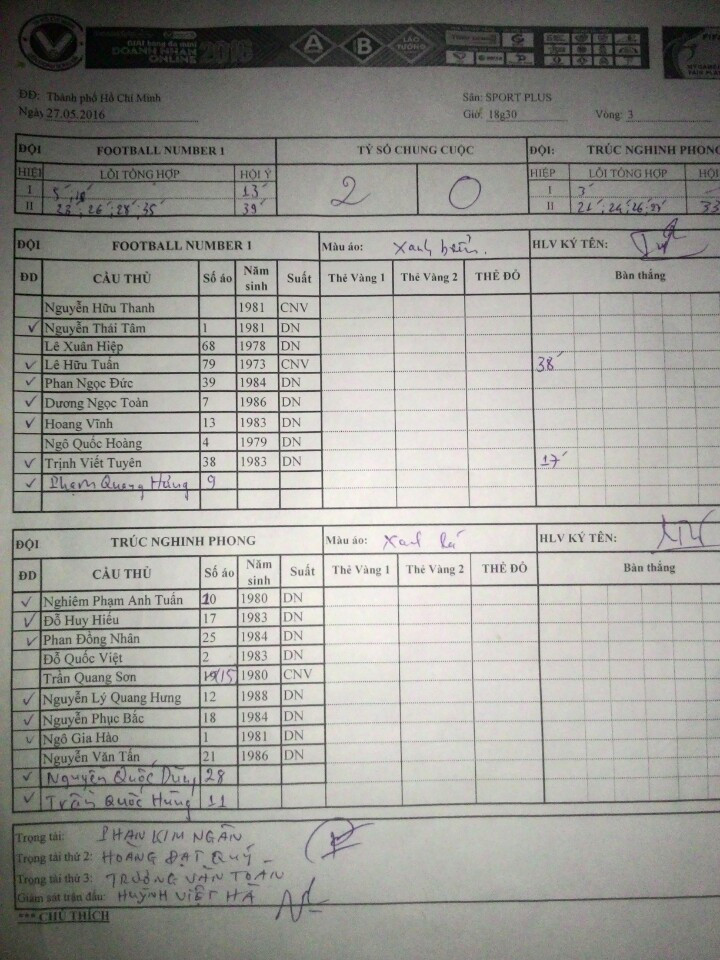 GIẢI bóng đá mini
DOANH NHÂN 2016
ONLINE
A B LÃO TƯỚNG
ĐĐ: Thành phố Hồ Chí Minh Sân: SPORT PLUS
Ngày 27.05.2016 Giờ: 18g30 Vòng: 3
ĐỘI FOOTBALL NUMBER 1 TỶ SỐ CHUNG CUỘC ĐỘI: TRÚC NGHINH PHONG
HIỆP LỖI TỔNG HỢP HỘI Ý 2 0 HIỆP LỖI TỔNG HỢP HỘI
I 13' I 3'
II 23', 26', 28', 35' 39' II 21', 24', 26' 33
ĐỘI FOOTBALL NUMBER 1 Màu áo: Xanh biển. HLV KÝ TÊN:
ĐD CẦU THỦ Số áo Năm sinh Suất Thẻ Vàng 1 Thẻ Vàng 2 THẺ ĐỎ Bàn thắng
Nguyễn Hữu Thanh 1981 CNV
✓ Nguyễn Thái Tâm 1 1981 DN
Lê Xuân Hiệp 68 1978 DN
✓ Lê Hữu Tuấn 79 1973 CNV 38'
✓ Phan Ngọc Đức 39 1984 DN
✓ Dương Ngọc Toàn 7 1986 DN
✓ Hoang Vĩnh 13 1983 DN
Ngô Quốc Hoàng 4 1979 DN
✓ Trịnh Viết Tuyên 38 1983 DN 17'
✓ Phạm Quang Hưng 9
ĐỘI TRÚC NGHINH PHONG Màu áo: Xanh lá HLV KÝ TÊN:
ĐD CẦU THỦ Số áo Năm sinh Suất Thẻ Vàng 1 Thẻ Vàng 2 THẺ ĐỎ Bàn thắng
✓ Nghiêm Phạm Anh Tuấn 10 1980 DN
✓ Đỗ Huy Hiếu 17 1983 DN
✓ Phan Đồng Nhân 25 1984 DN
Đỗ Quốc Việt 2 1983 DN
Trần Quang Sơn 15 1980 CNV
✓ Nguyễn Lý Quang Hưng 12 1988 DN
✓ Nguyễn Phục Bắc 18 1984 DN
✓ Ngô Gia Hào 1 1981 DN
Nguyễn Văn Tấn 21 1986 DN
✓ Nguyễn Quốc Dũng 28
✓ Trần Quốc Hùng 11
Trọng tài: PHAN KIM NGÂN
Trọng tài thứ 2: HOÀNG ĐẠT QUÝ
Trọng tài thứ 3: TRƯƠNG VĂN TOÀN
Giám sát trận đấu: HUỲNH VIỆT HÀ
*** CHÚ THÍCH